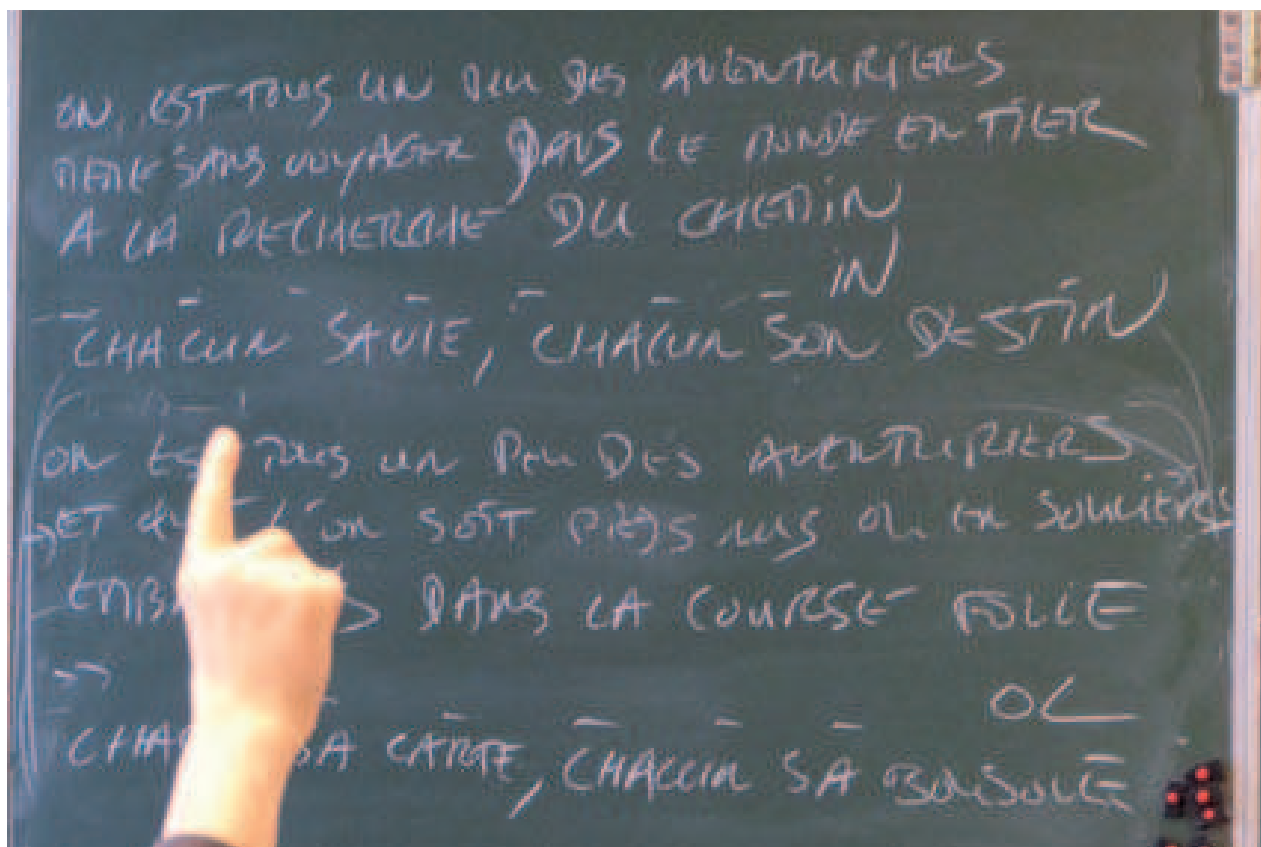 ON EST TOUS UN PEU DES AVENTURIERS
MEME SANS VOYAGER DANS LE MONDE ENTIER
A LA RECHERCHE DU CHEMIN
IN
CHACUN SA VIE, CHACUN SON DESTIN
ON EST TOUS UN PEU DES AVENTURIERS
ET L'ON SOIT PIEDS NUS OU EN SOULIERS
DANS LA COURSE FOLLE
OL
SA CARTE, CHACUN SA BOUSSOLE